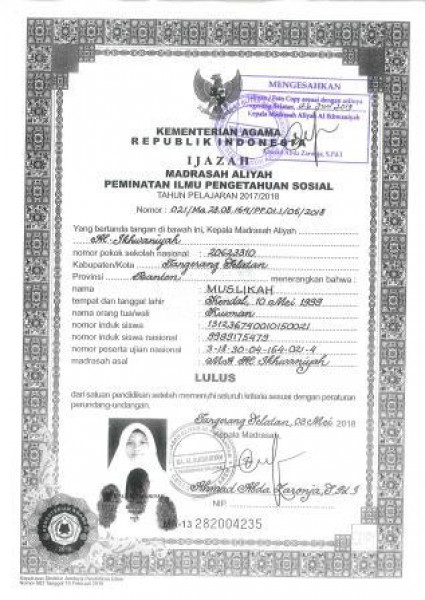 MENGESAHKAN
Kepala Madrasah Aliyah Al Ikhwaniyah
KEMENTERIAN AGAMA
REPUBLIK INDONESIA
IJAZAH
MADRASAH ALIYAH
PEMINATAN ILMU PENGETAHUAN SOSIAL
TAHUN PELAJARAN 2017/2018
Nomor : 021/Ma.28.08.164/PP.01.1/05/2018
Yang bertanda tangan di bawah ini, Kepala Madrasah Aliyah
Al-Ikhwaniyah
nomor pokok sekolah nasional : 20623310
Kabupaten/Kota : Tangerang Selatan
Provinsi : Banten menerangkan bahwa :
nama : MUSLIKAH
tempat dan tanggal lahir : Kendal, 10 Mei 1999
nama orang tua/wali :
nomor induk siswa : 131236740010150021
nomor induk siswa nasional : 9989175479
nomor peserta ujian nasional : 3-18-30-04-164-021-4
madrasah asal : MA Al Ikhwaniyah
LULUS
dari satuan pendidikan setelah memenuhi seluruh kriteria sesuai dengan peraturan
perundang-undangan.
Tangerang Selatan, 03 Mei 2018
Kepala Madrasah
Ahmad Abda Zaronja, S.Pd.I
NIP.
282004235